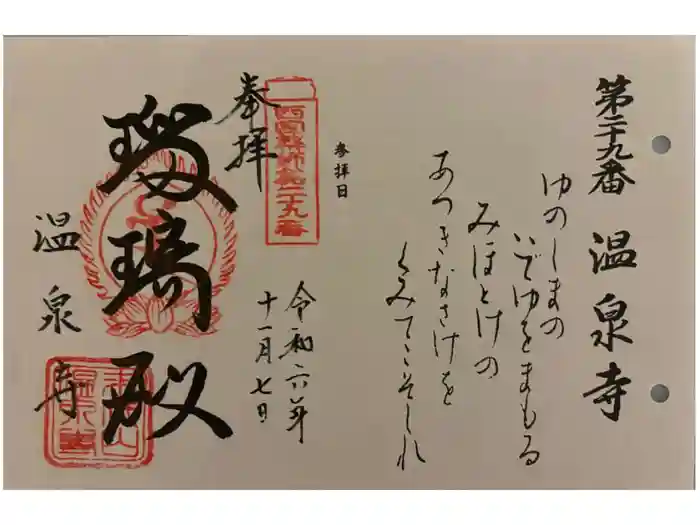 第二十九番 温泉寺
ゆのしまの
いでゆをまもる
みほとけの
あつきなさけを
くみてこそしれ
参拝日
令和六年
十一月七日
西国薬師第二十九番
奉拝
瑠璃殿
温泉寺